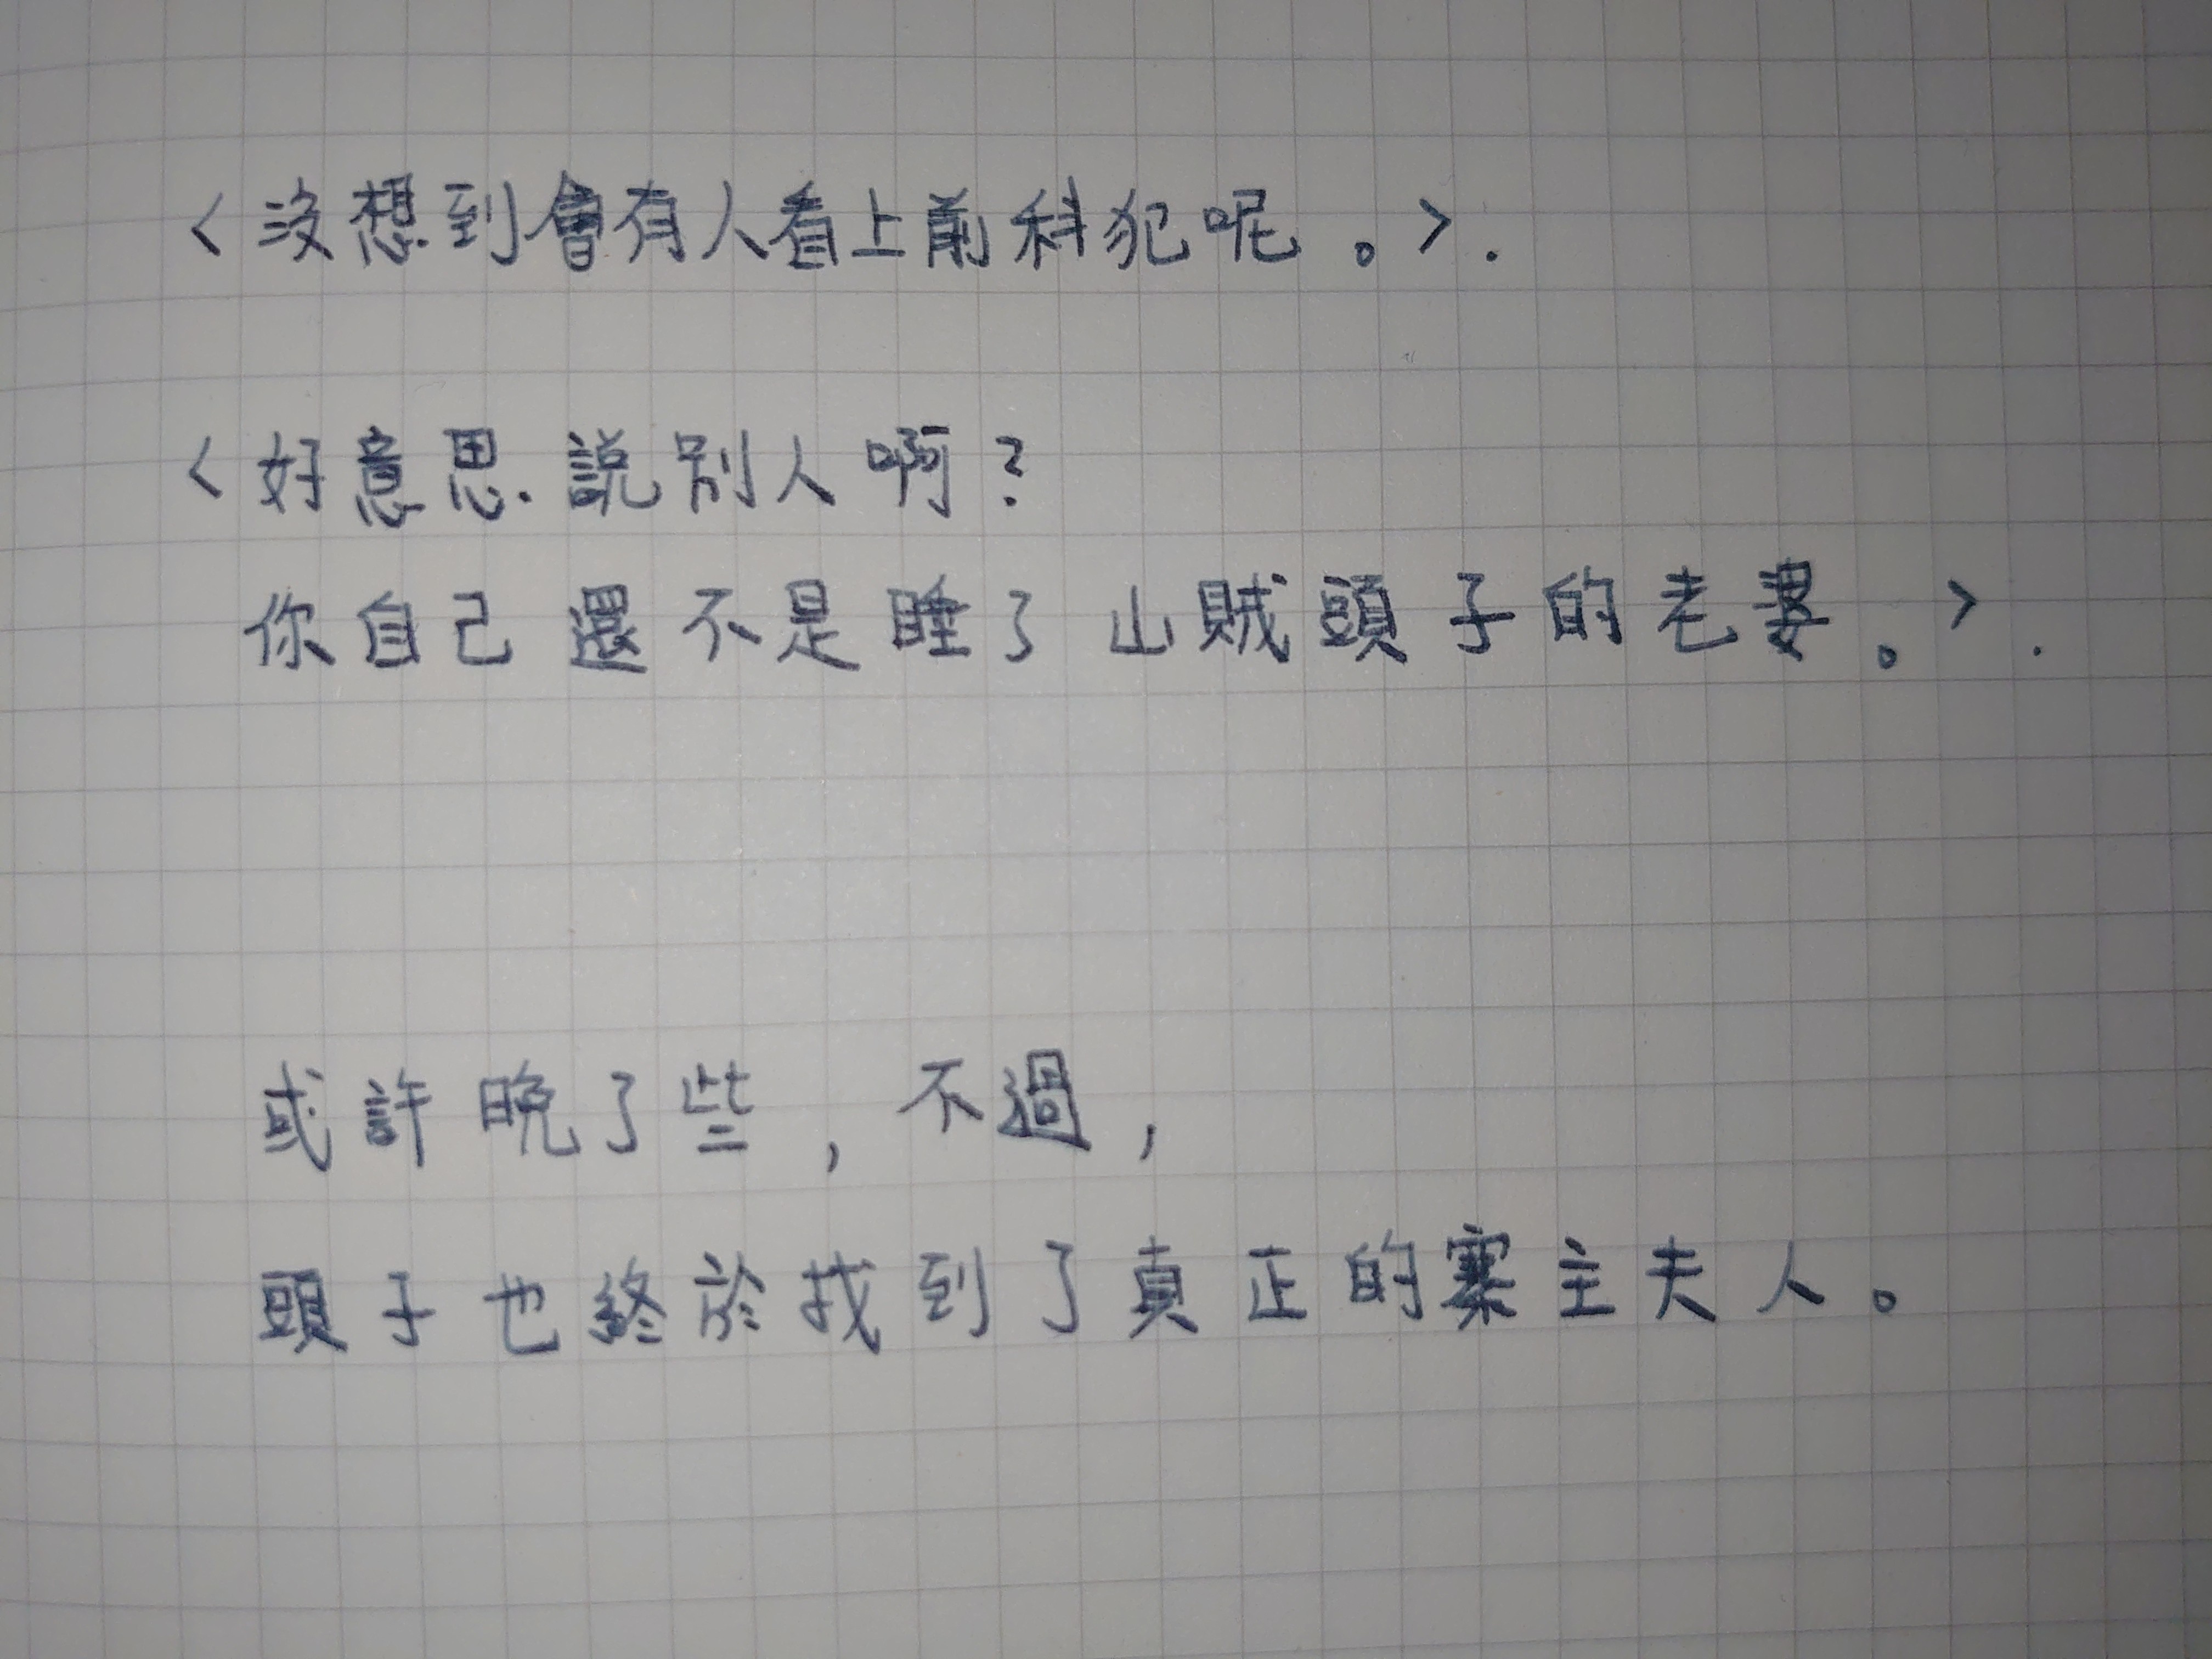 <沒想到會有人看上前科犯呢。>.
<好意思說別人啊?
你自己還不是睡了山賊頭子的老婆。>.
或許晚了些,不過,
頭子也終於找到了真正的寨主夫人。